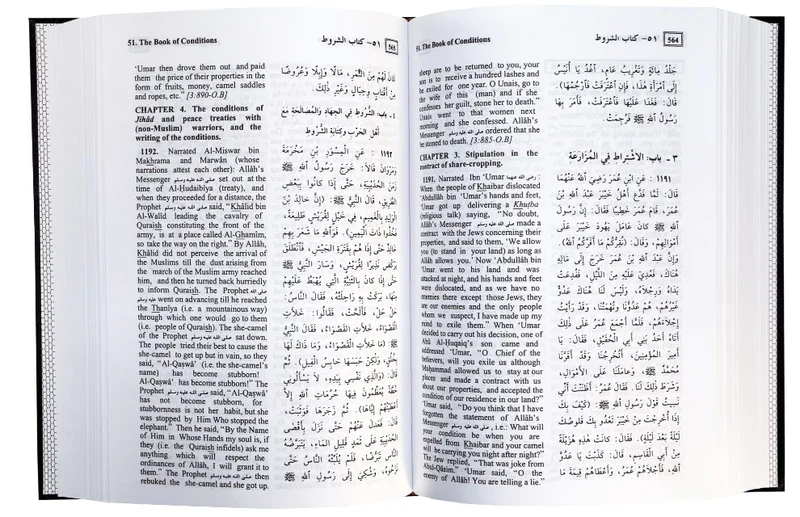 51. The Book of Conditions
٥١- كتاب الشروط
564
sheep are to be returned to you, your
son is to receive a hundred lashes and
be exiled for one year. O Unais, go to
the wife of this (man) and if she
confesses her guilt, stone her to death."
Unais went to that women next
morning and she confessed. Allâh's
Messenger صلى الله عليه وسلم ordered that she
be stoned to death. [3:885-O.B]
CHAPTER 3. Stipulation in the
contract of share-cropping.
1191. Narrated Ibn 'Umar رضي الله عنهما
When the people of Khaibar dislocated
'Abdullâh bin 'Umar's hands and feet,
'Umar got up delivering a Khutba
(religious talk) saying, "No doubt,
Allâh's Messenger صلى الله عليه وسلم made a
contract with the Jews concerning their
properties, and said to them, 'We allow
you (to stand in your land) as long as
Allâh allows you.' Now 'Abdullâh bin
'Umar went to his land and was
attacked at night, and his hands and feet
were dislocated, and as we have no
enemies there except those Jews, they
are our enemies and the only people
whom we suspect, I have made up my
mind to exile them." When 'Umar
decided to carry out his decision, one of
Abû Al-Huqaiq's son came and
addressed 'Umar, "O Chief of the
believers, will you exile us although
Muhammad allowed us to stay at our
places and made a contract with us
about our properties, and accepted the
condition of our residence in our land?"
'Umar said, "Do you think that I have
forgotten the statement of Allâh's
Messenger صلى الله عليه وسلم i.e.: What will
your condition be when you are
expelled from Khaibar and your camel
will be carrying you night after night?"
The Jew replied, "That was joke from
Abul-Qâsim." 'Umar said, "O the
enemy of Allâh! You are telling a lie."
جَلْدُ مِائَةٍ وَتَغْرِيبُ عَامٍ، اُغْدُ يَا أُنَيْسُ
إِلَى امْرَأَةِ هَذَا، فَإِنِ اعْتَرَفَتْ فَارْجُمْهَا).
قَالَ: فَغَدَا عَلَيْهَا فَاعْتَرَفَتْ، فَأَمَرَ بِهَا
رَسُولُ اللهِ ﷺ فَرُجِمَتْ.
٣ - باب: الاشْتِرَاطِ فِي المُزَارَعَةِ
١١٩١ : عَنِ ابْنِ عُمَرَ رَضِيَ اللهُ عَنْهُمَا
قَالَ: لَمَّا فَدَعَ أَهْلُ خَيْبَرَ عَبْدَ اللهِ بْنَ
عُمَرَ، قَامَ عُمَرُ خَطِيبًا فَقَالَ: إِنَّ رَسُولَ
اللهِ ﷺ كَانَ عَامَلَ يَهُودَ خَيْبَرَ عَلَى
أَمْوَالِهِمْ، وَقَالَ: (نُقِرُّكُمْ مَا أَقَرَّكُمُ اللهُ).
وَإِنَّ عَبْدَ اللهِ بْنَ عُمَرَ خَرَجَ إِلَى مَالِهِ
هُنَاكَ، فَعُدِيَ عَلَيْهِ مِنَ اللَّيْلِ، فَفُدِعَتْ
يَدَاهُ وَرِجْلَاهُ، وَلَيْسَ لَنَا هُنَاكَ عَدُوٌّ
غَيْرُهُمْ، هُمْ عَدُوُّنَا وَتُهْمَتُنَا، وَقَدْ رَأَيْتُ
إِجْلَاءَهُمْ، فَلَمَّا أَجْمَعَ عُمَرُ عَلَى ذَلِكَ
أَتَاهُ أَحَدُ بَنِي أَبِي الْحُقَيْقِ، فَقَالَ: يَا
أَمِيرَ المُؤْمِنِينَ، أَتُخْرِجُنَا وَقَدْ أَقَرَّنَا
مُحَمَّدٌ ﷺ، وَعَامَلَنَا عَلَى الأَمْوَالِ،
وَشَرَطَ ذَلِكَ لَنَا. فَقَالَ عُمَرُ: أَظَنَنْتَ أَنِّي
نَسِيتُ قَوْلَ رَسُولِ اللهِ ﷺ: (كَيْفَ بِكَ
إِذَا أُخْرِجْتَ مِنْ خَيْبَرَ تَعْدُو بِكَ قَلُوصُكَ
لَيْلَةً بَعْدَ لَيْلَةٍ). فَقَالَ: كَانَتْ هَذِهِ هُزَيْلَةً
مِنْ أَبِي الْقَاسِمِ، قَالَ: كَذَبْتَ يَا عَدُوَّ
اللهِ، فَأَجْلَاهُمْ عُمَرُ، وَأَعْطَاهُمْ قِيمَةَ مَا
51. The Book of Conditions
٥١- كتاب الشروط
565
'Umar then drove them out and paid
them the price of their properties in the
form of fruits, money, camel saddles
and ropes, etc." [3:890-O.B]
CHAPTER 4. The conditions of
Jihâd and peace treaties with
(non-Muslim) warriors, and the
writing of the conditions.
1192. Narrated Al-Miswar bin
Makhrama and Marwân (whose
narrations attest each other): Allâh's
Messenger صلى الله عليه وسلم set out at the
time of Al-Hudaibiya (treaty), and
when they proceeded for a distance, the
Prophet صلى الله عليه وسلم said, "Khâlid bin
Al-Walîd leading the cavalry of
Quraish constituting the front of the
army, is at a place called Al-Ghamîm,
so take the way on the right." By Allâh,
Khâlid did not perceive the arrival of
the Muslims till the dust arising from
the march of the Muslim army reached
him, and then he turned back hurriedly
to inform Quraish. The Prophet صلى الله عليه وسلم
went on advancing till he reached
the Thanîya (i.e. a mountainous way)
through which one would go to them
(i.e. people of Quraish). The she-camel
of the Prophet صلى الله عليه وسلم sat down.
The people tried their best to cause the
she-camel to get up but in vain, so they
said, "Al-Qaswâ' (i.e. the she-camel's
name) has become stubborn!
Al-Qaswâ' has become stubborn!" The
Prophet صلى الله عليه وسلم said, "Al-Qaswâ'
has not become stubborn, for
stubbornness is not her habit, but she
was stopped by Him Who stopped the
elephant." Then he said, "By the Name
of Him in Whose Hands my soul is, if
they (i.e. the Quraish infidels) ask me
anything which will respect the
ordinances of Allâh, I will grant it to
them." The Prophet صلى الله عليه وسلم then
rebuked the she-camel and she got up.
كَانَ لَهُمْ مِنَ الثَّمَرِ، مَالًا وَإِبِلًا وَعُرُوضًا
مِنْ أَقْتَابٍ وَحِبَالٍ وَغَيْرِ ذَلِكَ.
٤- باب: الشُّرُوطِ فِي الجِهَادِ وَالمُصَالَحَةِ مَعَ
أَهْلِ الحَرْبِ وَكِتَابَةِ الشُّرُوطِ
١١٩٢ : عَنِ المِسْوَرِ بْنِ مَخْرَمَةَ
وَمَرْوَانَ قَالَا: خَرَجَ رَسُولُ اللهِ ﷺ
زَمَنَ الحُدَيْبِيَةِ، حَتَّى إِذَا كَانُوا بِبَعْضِ
الطَّرِيقِ، قَالَ النَّبِيُّ ﷺ: (إِنَّ خَالِدَ بْنَ
الْوَلِيدِ بِالْغَمِيمِ، فِي خَيْلٍ لِقُرَيْشٍ طَلِيعَةً،
فَخُذُوا ذَاتَ الْيَمِينِ). فَوَاللهِ مَا شَعَرَ بِهِمْ
خَالِدٌ حَتَّى إِذَا هُمْ بِقَتَرَةِ الجَيْشِ، فَانْطَلَقَ
يَرْكُضُ نَذِيرًا لِقُرَيْشٍ، وَسَارَ النَّبِيُّ ﷺ
حَتَّى إِذَا كَانَ بِالثَّنِيَّةِ الَّتِي يُهْبَطُ عَلَيْهِمْ
مِنْهَا، بَرَكَتْ بِهِ رَاحِلَتُهُ، فَقَالَ النَّاسُ:
حَلْ حَلْ، فَأَلَحَّتْ، فَقَالُوا: خَلَأَتِ
الْقَصْوَاءُ، خَلَأَتِ الْقَصْوَاءُ، فَقَالَ النَّبِيُّ
ﷺ: (مَا خَلَأَتِ الْقَصْوَاءُ، وَمَا ذَاكَ لَهَا
بِخُلُقٍ، وَلَكِنْ حَبَسَهَا حَابِسُ الْفِيلِ). ثُمَّ
قَالَ: (وَالَّذِي نَفْسِي بِيَدِهِ، لَا يَسْأَلُونَنِي
خُطَّةً يُعَظِّمُونَ فِيهَا حُرُمَاتِ اللهِ إِلَّا
أَعْطَيْتُهُمْ إِيَّاهَا). ثُمَّ زَجَرَهَا فَوَثَبَتْ،
قَالَ: فَعَدَلَ عَنْهُمْ حَتَّى نَزَلَ بِأَقْصَى
الحُدَيْبِيَةِ عَلَى ثَمَدٍ قَلِيلِ المَاءِ، يَتَبَرَّضُهُ
النَّاسُ تَبَرُّضًا، فَلَمْ يُلَبِّثْهُ النَّاسُ حَتَّى
نَزَحُوهُ، وَشُكِيَ إِلَى رَسُولِ اللهِ ﷺ